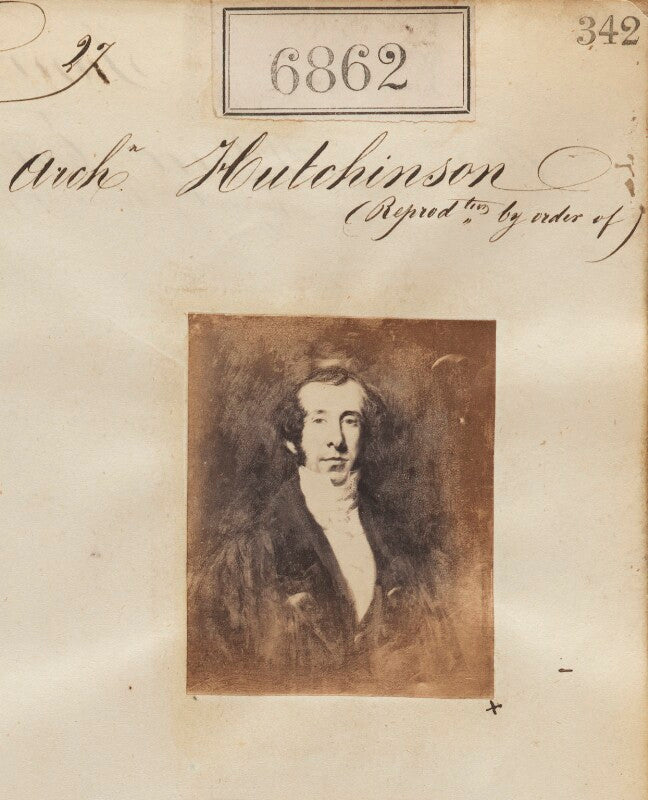 27
6862
342
Archn Hutchinson
(Reprodtion by order of)
x